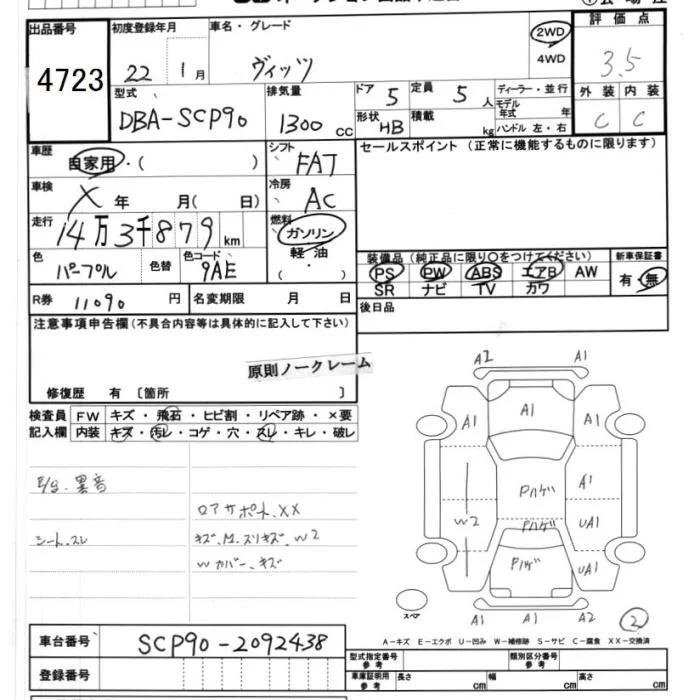 出品番号 初度登録年月 車名・グレード 2WD 4WD 評価点
4723 22 1月 ヴィッツ 3.5
型式 排気量 ドア 5 定員 5人 ディーラー・並行 外装 内装
DBA-SCP90 1300cc 形状 HB 積載 kg モデル年式 年 C C
ハンドル 左・右
車歴 自家用・( ) シフト FAT セールスポイント (正常に機能するものに限ります)
車検 X 年 月( 日) 冷房 AC
走行 14万3千879km 燃料 ガソリン
軽油
色 パープル 色替 色コード 9AE 装備品 (純正品に限り○をつけてください) 新車保証書
PS PW ABS エアB AW 有・無
SR ナビ TV カワ
R券 11090円 名変期限 月 日 後日品
注意事項申告欄(不具合内容等は具体的に記入して下さい)
原則ノークレーム
修復歴 有 〔箇所 〕
検査員 FW キズ・飛石・ヒビ割・リペア跡・×要
記入欄 内装 キズ・汚レ・コゲ・穴・スレ・キレ・破レ
E/g.異音
ロアサポート.XX
シート.スレ キズ.M.スリキズ.W2
Wカバー.キズ
A2 A1
A1 A1 A1
Pハゲ A1
W2 Pハゲ UA1
Pハゲ UA1
スペア A1 A1 A2 2
A-キズ E-エクボ U-凹み W-補修跡 S-サビ C-腐食 XX-交換済
車台番号 SCP90-2092438
型式指定番号 参考 類別区分番号 参考
登録番号 車庫証明用 参考 長さ cm 幅 cm 高さ cm